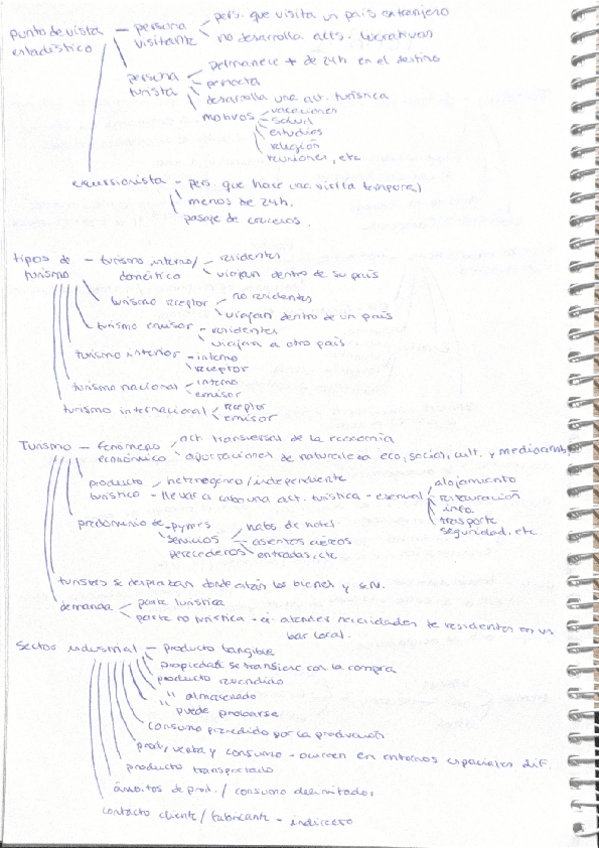 punto de vista - persona - pers. que visita un país extranjero
estadístico visitante no desarrolla acts. lucrativas
persona - permanece + de 24h en el destino
turista pernocta
desarrolla una act. turística
motivos - vacaciones
salud
estudios
religión
reuniones, etc
excursionista - pers. que hace una visita temporal
menos de 24h.
pasaje de cruceros.
tipos de - turismo interno/ - residentes
turismo doméstico viajan dentro de su país
turismo receptor - no residentes
viajan dentro de un país
turismo emisor - residentes
viajan a otro país
turismo interior - interno
receptor
turismo nacional - interno
emisor
turismo internacional - receptor
emisor
Turismo - fenómeno act. transversal de la economía
económico aportaciones de naturaleza eco, social, cult. y medioamb.
producto heterogéneo/independiente
turístico - llevar a cabo una act. turística - esencial alojamiento
restauración
info.
trasporte
seguridad, etc.
predominio de - pymes
servicios - habs de hotel
perecederos asientos aéreos
entradas, etc
turistas se desplazan donde están los bienes y
demanda - parte turística
parte no turística - ej. atender necesidades de residentes en un
bar local.
Sector industrial - producto tangible
propiedad se transfiere con la compra
producto revendido
" almacenado
" puede probarse
consumo precedido por la producción
prod, venta y consumo - ocurren en entornos espaciales dif.
producto transportado
ámbitos de prod./ consumo delimitados
contacto cliente/ fabricante - indirecto